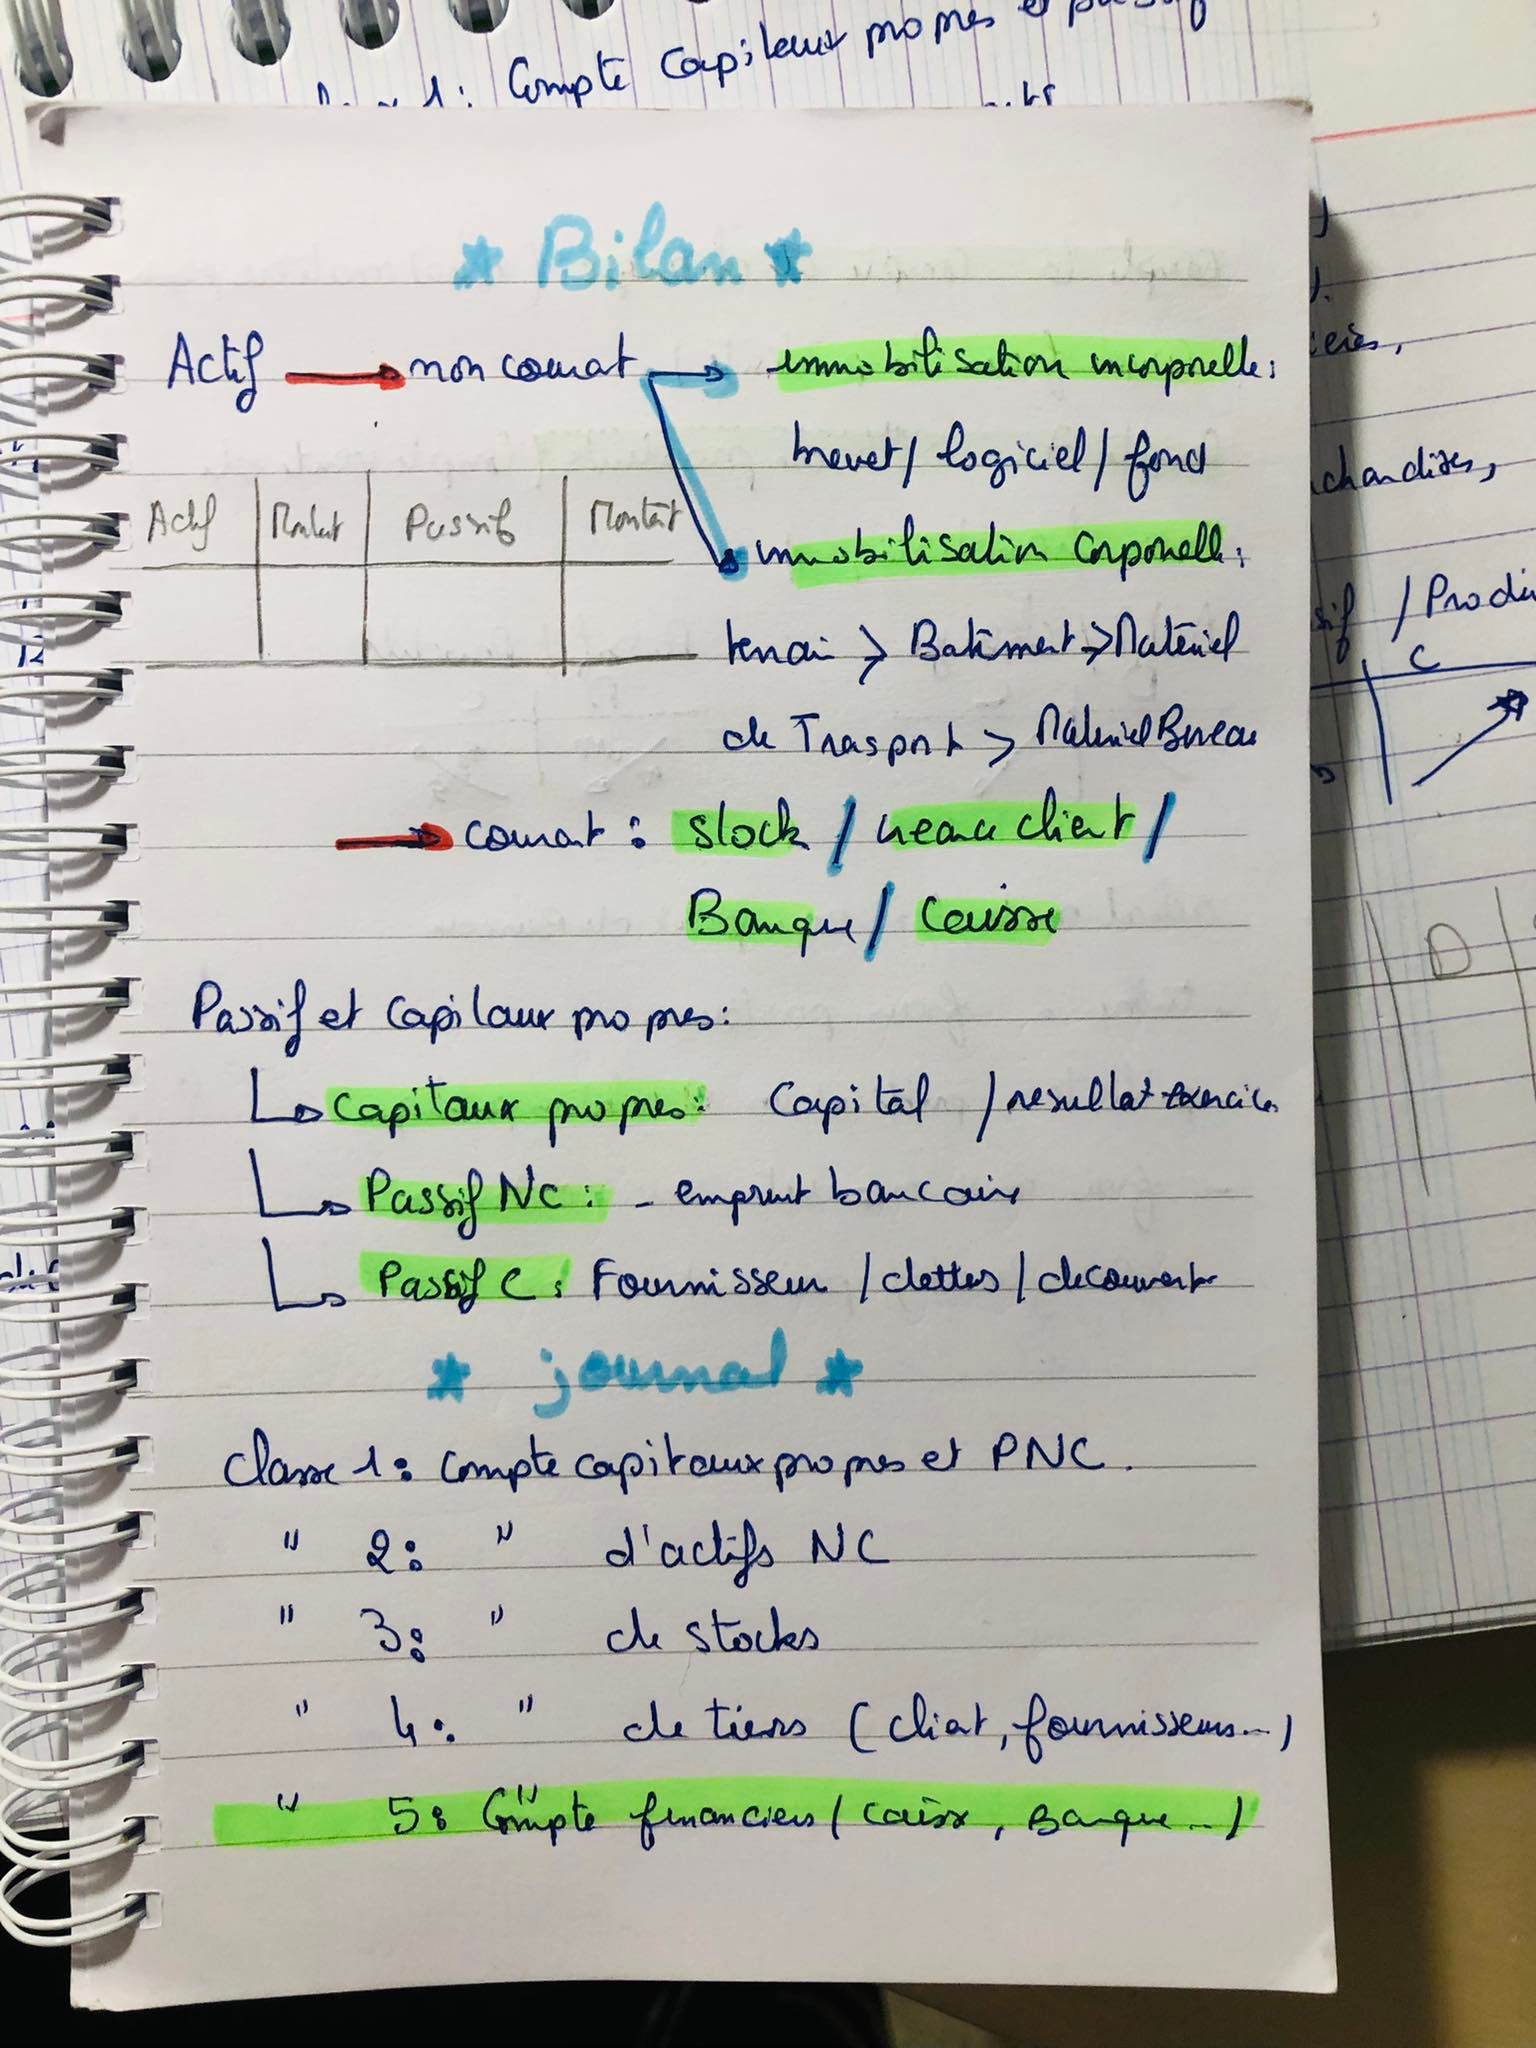 Compte Capitaux propres et passif
* Bilan *
Actif → non courat → immobilisation incorporelle:
brevet / logiciel / fond
Actif | Montat | Passif | Montat
immobilisation corporelle:
terrain > Batiment > Matériel
de Trasport > Materiel Bureau
→ courat : stock / creance client /
Banque / Caisse
Passif et Capitaux propres:
Capitaux propres: Capital / resultat exercice
Passif NC : - emprunt bancaire
Passif C : Fournisseur / dettes / decouvert
* journal *
Classe 1: Compte capitaux propres et PNC.
" 2: " d'actifs NC
" 3: " de stocks
" 4: " de tiers (cliat, fournisseurs...)
" 5: Compte financiers (caisse, Banque...)
chandises,
/ Produi
C
D